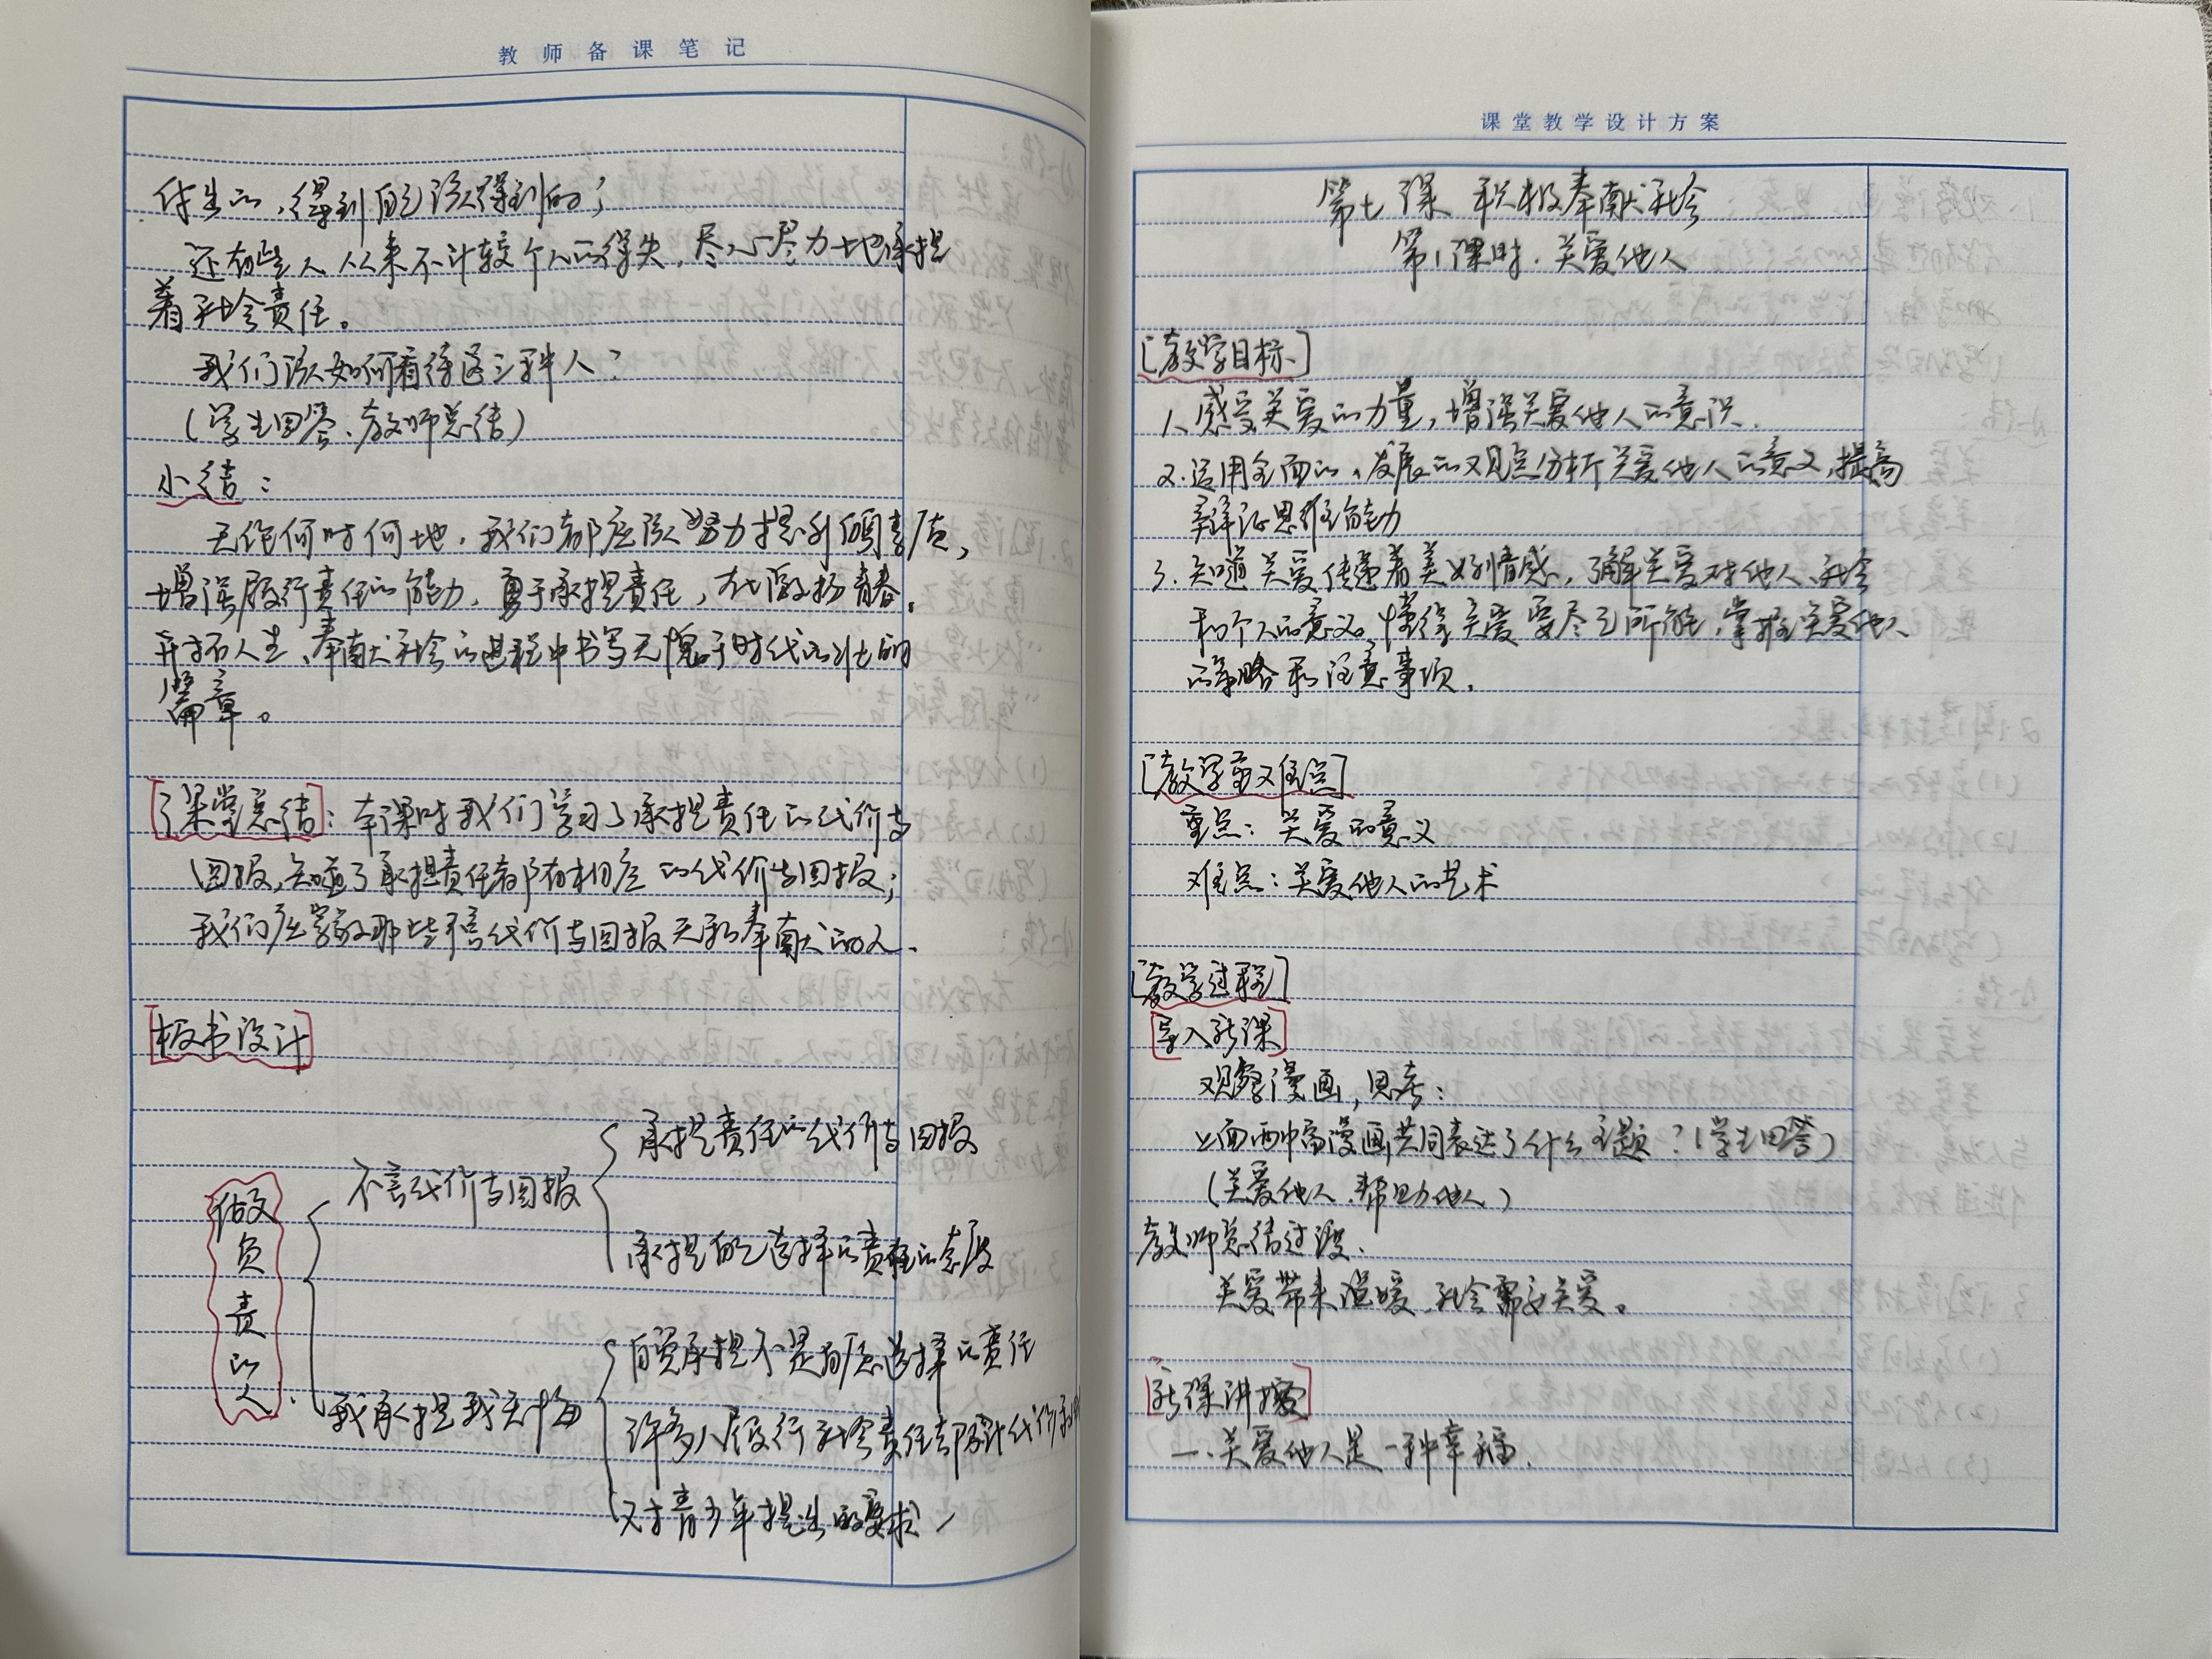 教师备课笔记
什生的，得到自己该得到的；
还有些人从来不计较个人的得失，尽心尽力地承担
着社会责任。
我们该如何看待这三种人？
（学生回答、教师总结）
小结：
无论何时何地，我们都应该努力提升自身素质，
增强履行责任的能力，勇于承担责任，在激扬青春、
开拓人生、奉献社会的进程中书写无愧于时代的壮丽
篇章。
[课堂总结]：本课时我们学习了承担责任的代价与
回报，知道了承担责任都有相应的代价与回报；
我们应学敬那些不言代价与回报无私奉献的人.
[板书设计]
做负责的人
不言代价与回报
承担责任的代价与回报
承担自己选择的责任的态度
我承担我无悔
自觉承担不是自愿选择的责任
许多人履行社会责任都不计代价和回
对青少年提出的要求
课堂教学设计方案
第七课 积极奉献社会
第1课时.关爱他人
[教学目标]
1、感受关爱的力量，增强关爱他人的意识.
2.运用全面的、发展的观点分析关爱他人的意义，提高
辩证思维能力
3.知道关爱传递着美好情感，了解关爱对他人、社会
和个人的意义。懂得关爱要尽己所能，掌握关爱他人
的策略和注意事项.
[教学重难点]
重点：关爱的意义
难点：关爱他人的艺术
[教学过程]
[导入新课]
观察漫画，思考：
上面两幅漫画共同表达了什么主题？（学生回答）
（关爱他人、帮助他人）
教师总结过渡、
关爱带来温暖，社会需要关爱。
[新课讲授]
一.关爱他人是一种幸福.